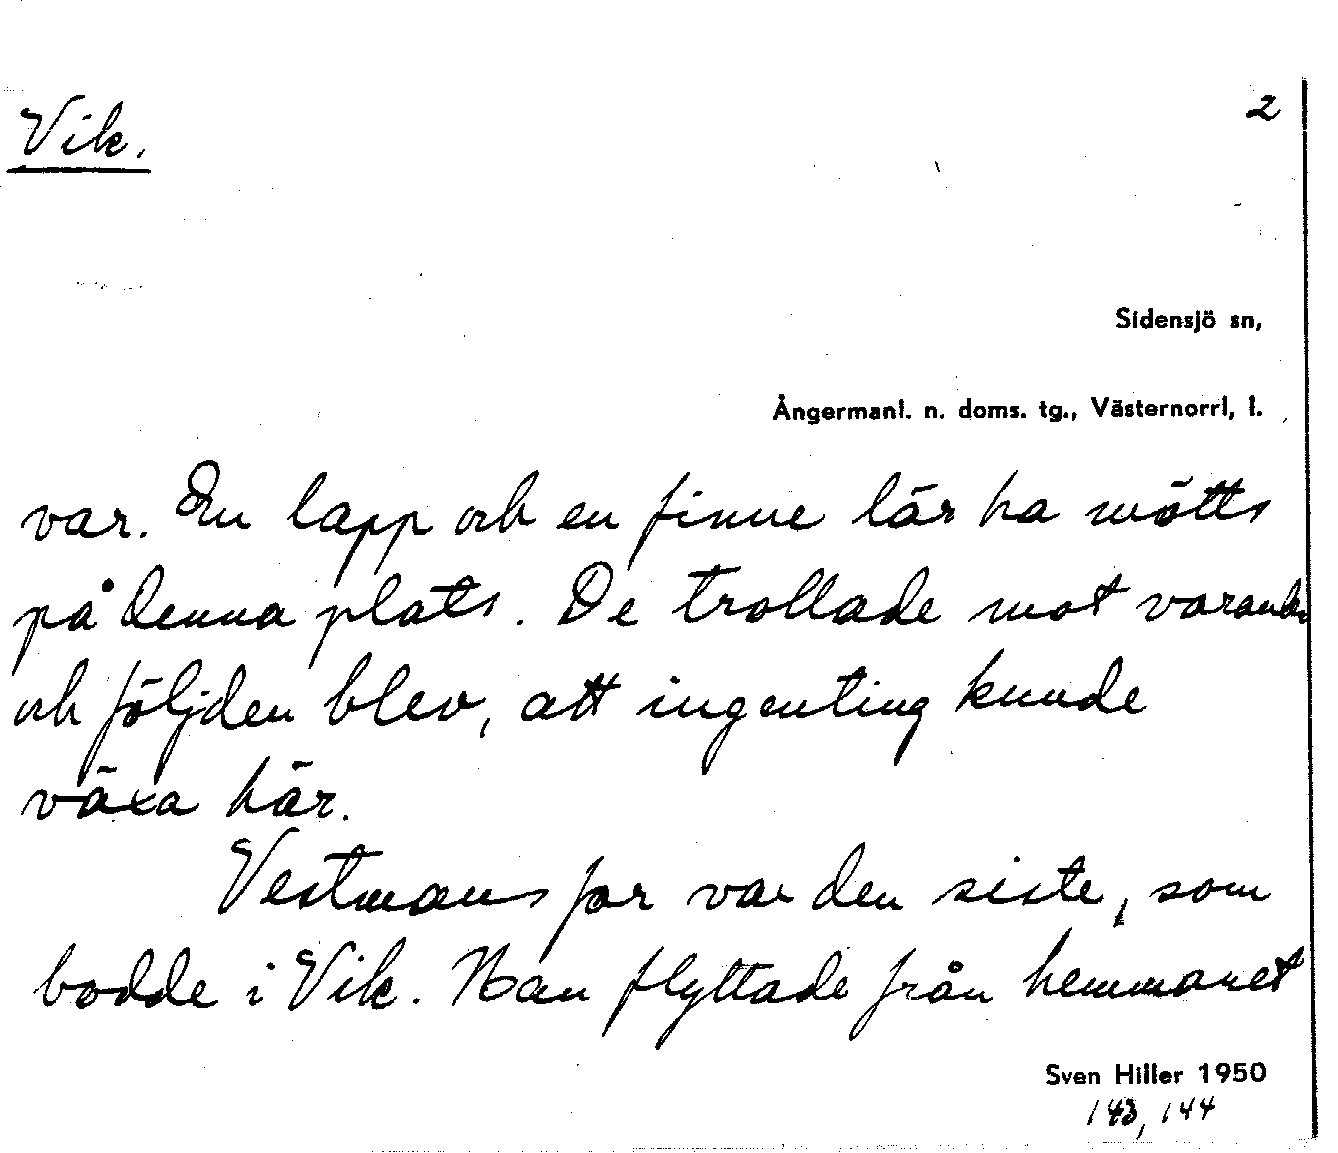 Vik.
2
Sidensjö sn,
Ångermanl. n. doms. tg., Västernorrl, l.
var. En lapp och en finne lär ha mötts
på denna plats. De trollade mot varandra
och följden blev, att ingenting kunde
växa här.
Vestmans far var den siste, som
bodde i Vik. Han flyttade från hemmanet
Sven Hiller 1950
143, 144